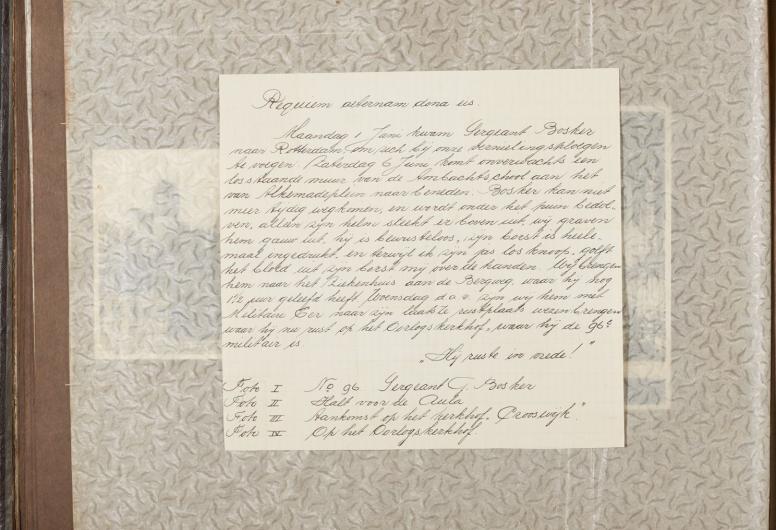 Requiem aeternam dona us.
Maandag 1 Juni kwam Sergeant Bosker
naar Rotterdam, om zich bij onze vernielingsploegen
te voegen. Zaterdag 6 Juni, komt onverwachts een
losstaande muur van de Ambachtschool aan het
van Alkemadeplein naar beneden. Bosker kan niet
meer tijdig wegkomen, en wordt onder het puin bedol-
ven, alleen zijn helm steekt er boven uit, wij graven
hem gauw uit, hij is bewusteloos, zijn borst is hele-
maal ingedrukt, en terwijl ik zijn jas los knoop, golft
het bloed uit zijn borst mij over de handen. Wij brengen
hem naar het Ziekenhuis aan de Bergweg, waar hij nog
1½ uur geleefd heeft. Woensdag d.a.v. zijn wij hem met
Militaire Eer naar zijn laatste rustplaats wezen brengen
waar hij nu rust op het Oorlogskerkhof, waar hij de 96e
militair is.
„Hij ruste in vrede!"
Foto I No 96 Sergeant G. Bosker
Foto II Halt voor de Aula
Foto III Aankomst op het kerkhof „Crooswijk"
Foto IV Op het Oorlogskerkhof